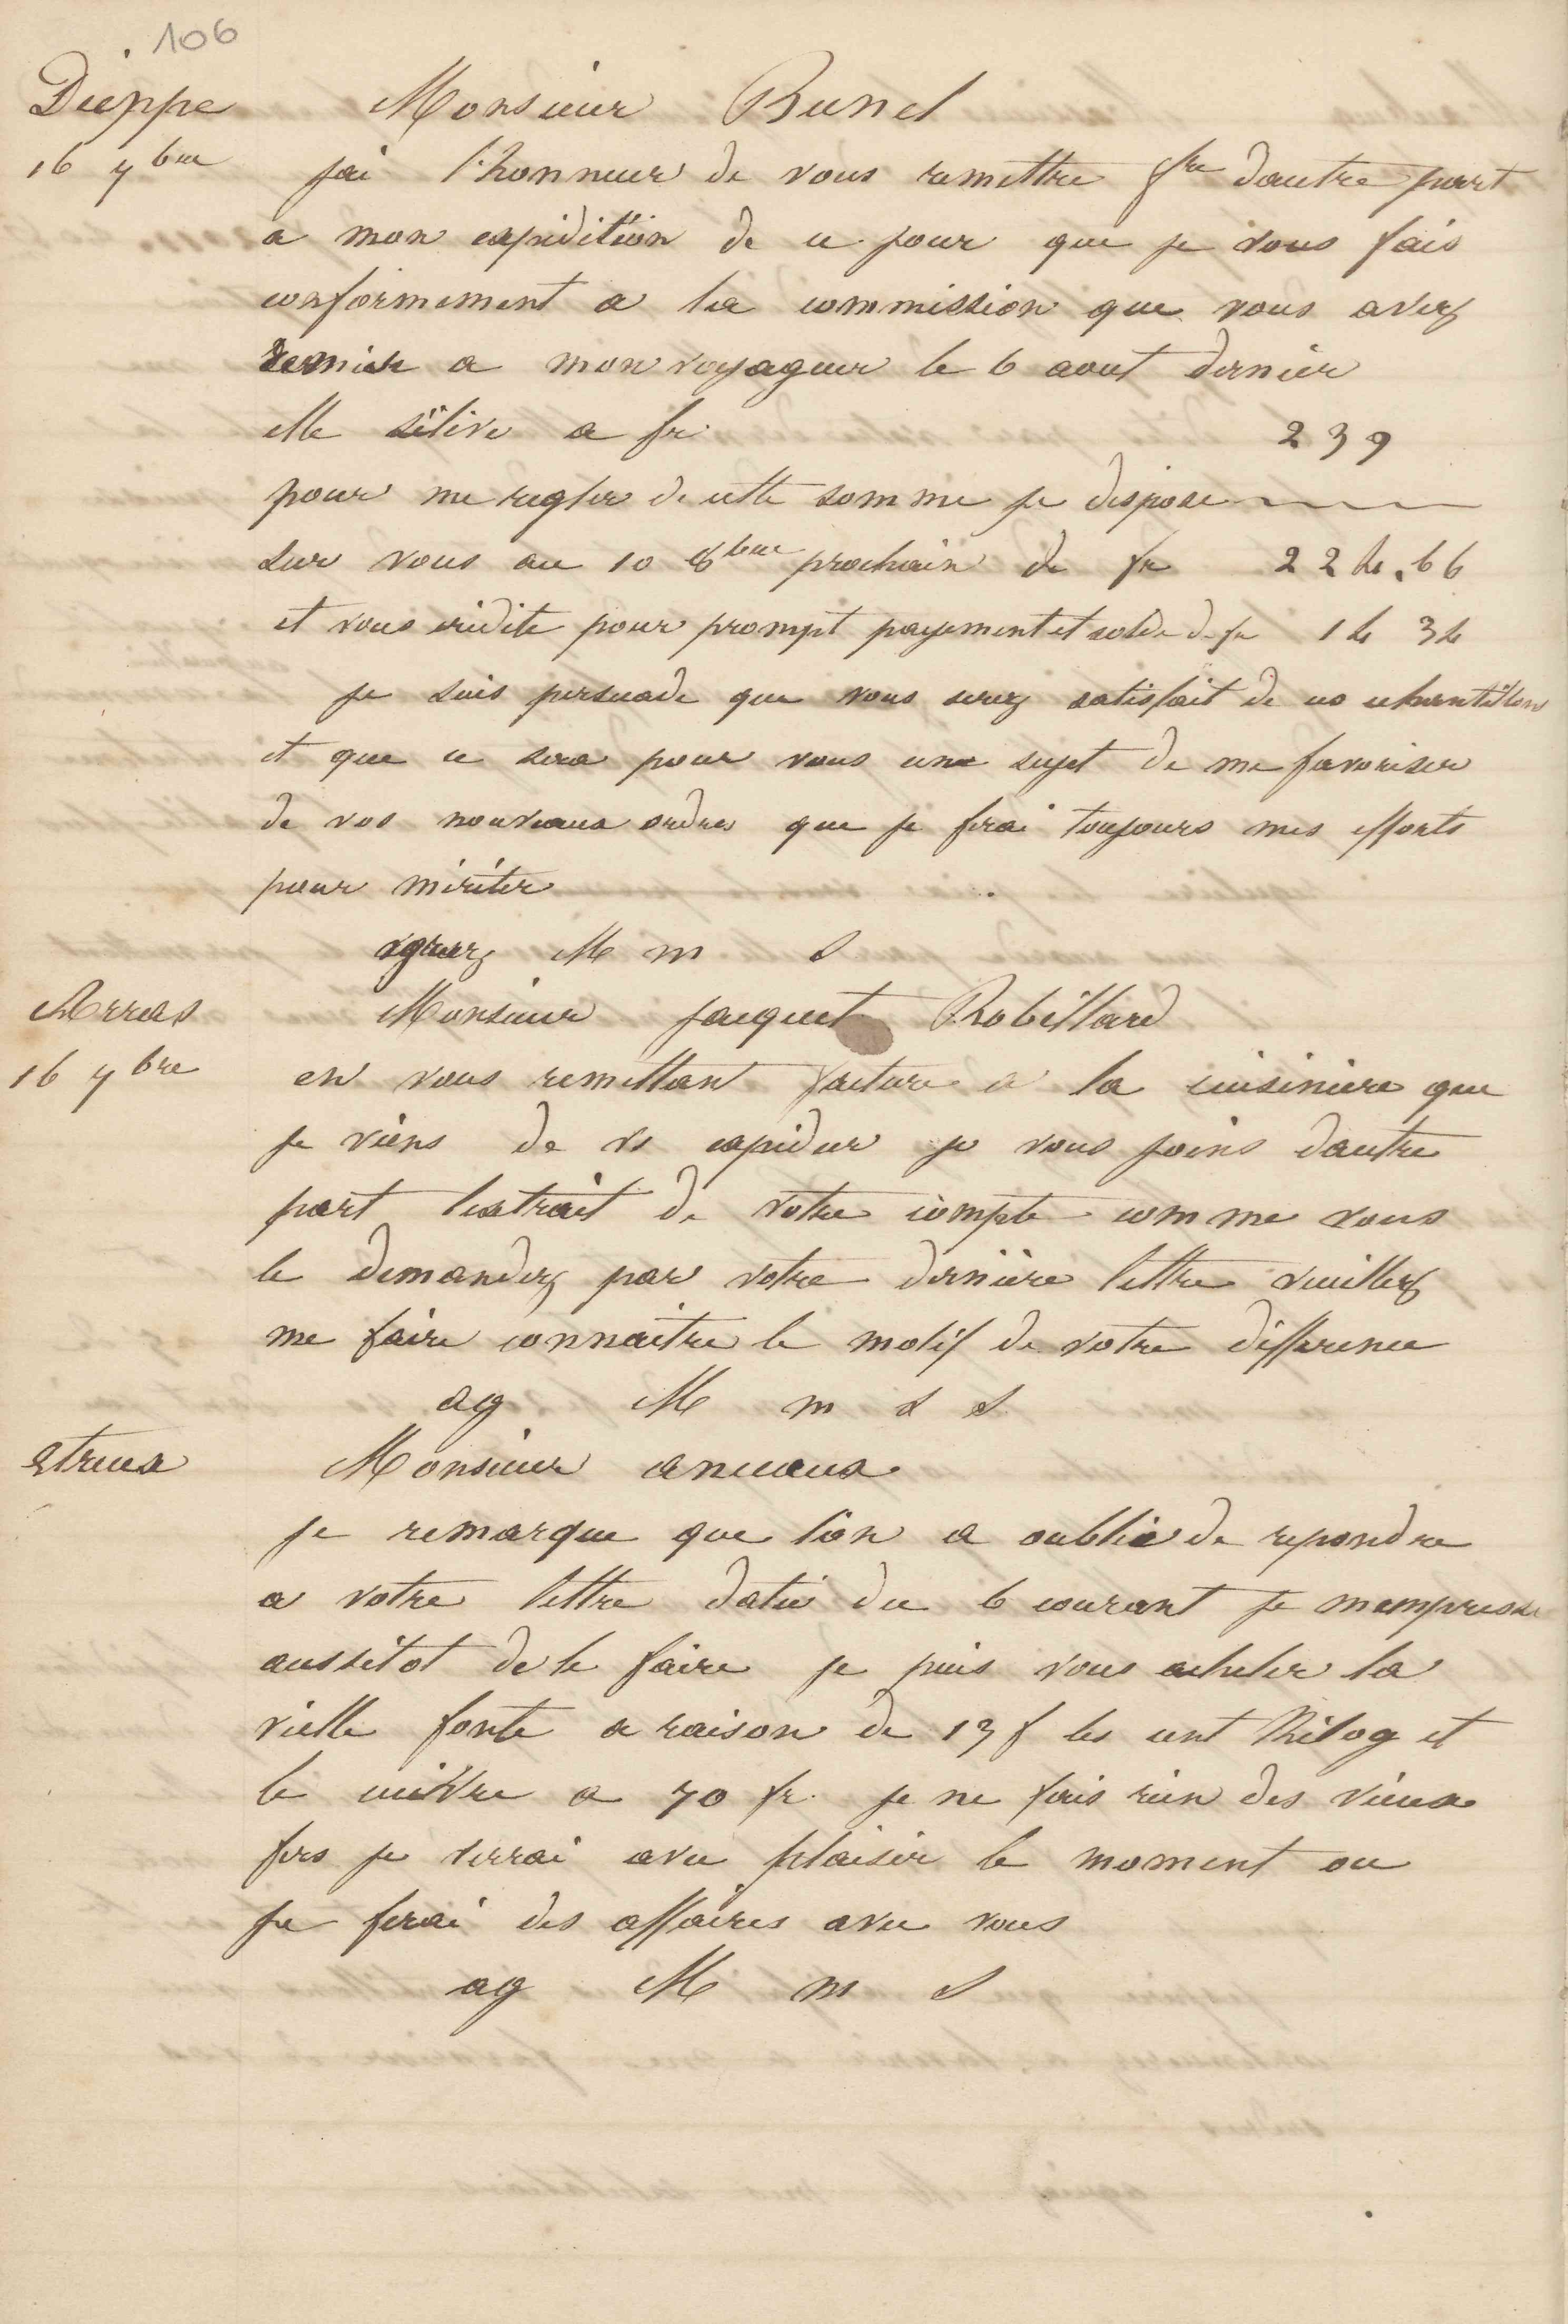 106
Dieppe Monsieur Bunel
16 7bre jai l'honneur de vous remettre fre dautre part
a mon expedition de ce jour que je vous fais
conformement a la commission que vous avez
remise a mon voyageur le 6 aout dernier
elle sélève a fr. 239
pour me regler de cette somme je dispose
sur vous au 10 8bre prochain de fr 224.66
et vous crédite pour prompt payement et solde de fr 14 34
je suis persuade que vous serez satisfait de ces echantillons
et que ce sera pour vous une sujet de me favoriser
de vos nouveaux ordres que je ferai toujours mes efforts
pour mériter
agreez M m S
Arras Monsieur jacquet Robillard
16 7bre en vous remettan facture a la cuisiniere que
je viens de vs expedier je vous joins dautre
part lextrait de votre compte comme vous
le demandez par votre dernière lettre veuillez
me faire connaitre le motif de votre differance
ag M m s S
etreux Monsieur anceaux
je remarque que l'on a oublié de repondre
a votre lettre datée du 6 courant je mempresse
aussitot de le faire je puis vous acheter la
vielle fonte a raison de 13 f les cent Kilog et
le cuivre a 70 fr. je ne fais rien des vieux
fers je verrai avec plaisir le moment ou
je ferai des affaires avec vous
ag M m S